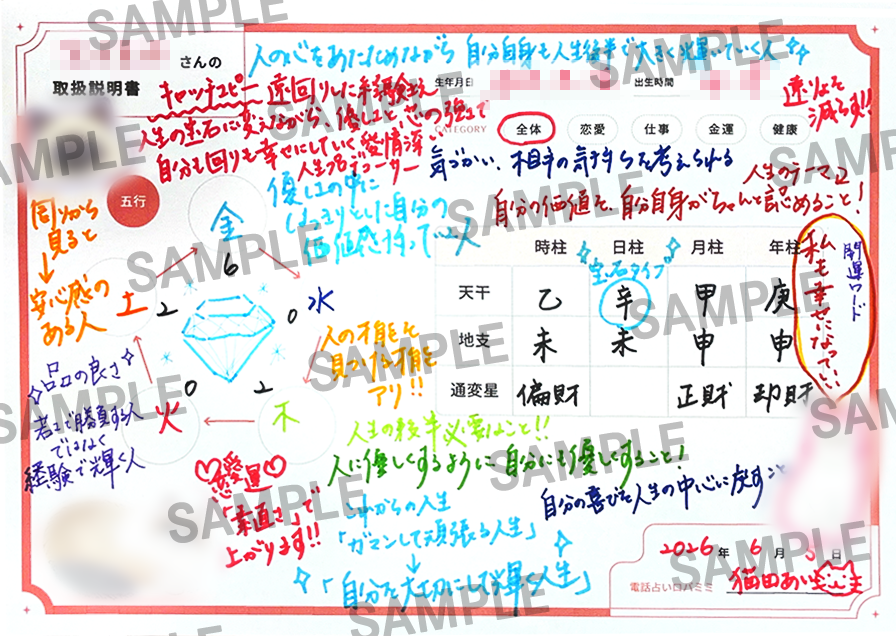 さんの
取扱説明書
人の心をあたためながら 自分自身も人生後半で大きく光輝いていく人
生年月日
出生時間
キャッチコピー 遠回りした経験さえ
人生の宝石に変えながら、優しさと心の強さで
自分も回りも幸せにしていく愛情深い
人生プロデューサー
CATEGORY
全体
恋愛
仕事
金運
健康
遠りょを
減らす!!
気づかい、相手の気持ちを考えられる
人生のテーマは
自分の価値を、自分自身がちゃんと認めること!
優しさの中に
はっきりとした自分の
価値感持っている人
五行
金
6
水
0
木
2
火
0
土
2
回りから
見ると
↓
安心感の
ある人
品の良さ
若さで勝負する人
ではなく
経験で輝く人
人の才能を
見つける才能
アリ!!
時柱
日柱
月柱
年柱
宝石タイプ
天干
乙
辛
甲
庚
地支
未
未
申
申
通変星
偏財
正財
劫財
開運ワード
私も幸せになっていい
人生の後半必要なこと!!
人に優しくするように自分にも優しくすること!
自分の喜びを人生の中心に戻すこと
♡恋愛運♡
「素直さ」で
上がります!!
これからの人生
「ガマンして頑張る人生」
↓
「自分を大切にして輝く人生」
2026年 6月 日
電話占いロバミミ
猫田あい
SAMPLE
SAMPLE
SAMPLE
SAMPLE
SAMPLE
SAMPLE
SAMPLE
SAMPLE
SAMPLE
SAMPLE
SAMPLE
SAMPLE
SAMPLE
SAMPLE